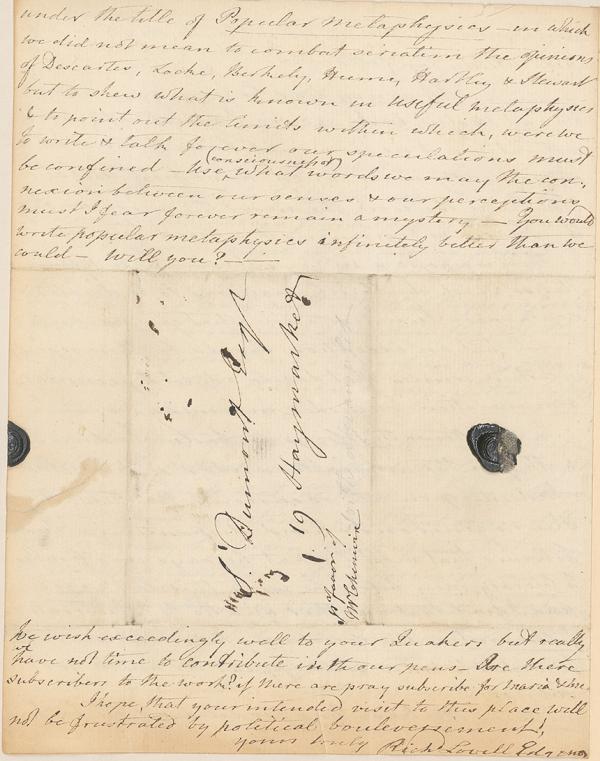 under the title of Popular metaphysics – in which
we did not mean to combat seriatim the opinions
of Descartes, Locke, Berkely, Hume, Hartley & Stewart
but to shew what is known in useful metaphysics
& to point out the limits within which, were we
to write & talk for ever our speculations must
be confined – Use what words we may the con,
(consciousness of)
nexion between our senses & our perceptions
must I fear forever remain a mystery – You would
write popular metaphysics infinitely better than we
could – will you? –
S. Dumont Esqr
19 Haymarket
favor of
We wish exceedingly well to your Quakers but really
have not time to contribute with our pens – Are there
subscribers to the work? if there are pray subscribe for Maria & me.
I hope, that your intended visit to this place will
not be frustrated by political bouleversement!
yours truly Richd Lovell Edgewo